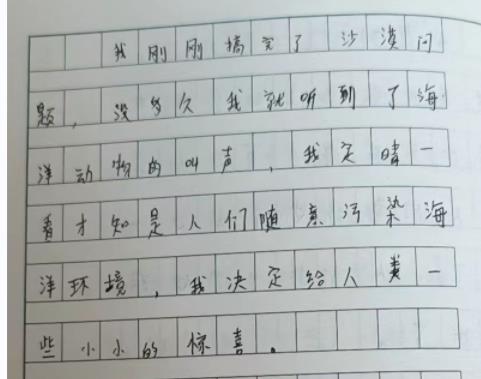 我刚刚搞完了沙漠问
题，没多久我就听到了海
洋动物的叫声，我定睛一
看才知是人们随意污染海
洋环境，我决定给人类一
些小小的惊喜。